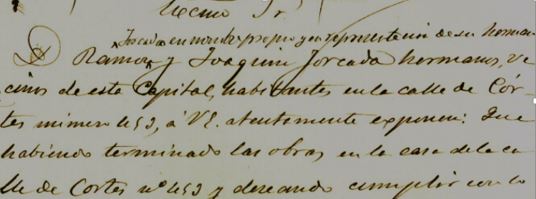 Excmo Sr
Forcada en nombre propio y en representación de su herma-
D Ramon y Joaquin Forcada hermanos, ve
cinos de esta Capital, habitantes en la calle de Cór-
tes número 453, á V.E. atentamente exponen: Que
habiendo terminado las obras, en la casa de la ca
lle de Cortes nº 453 y deseando cumplir con lo